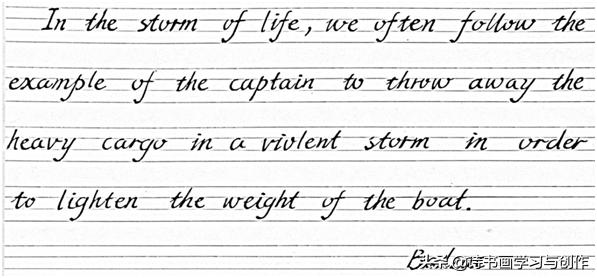 In the storm of life, we often follow the
example of the captain to throw away the
heavy cargo in a violent storm in order
to lighten the weight of the boat.
头条@诗书画学习与创作